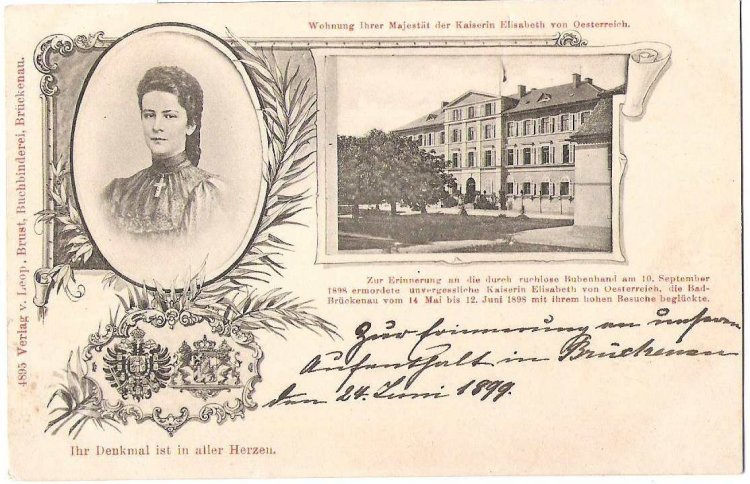 Wohnung Ihrer Majestät der Kaiserin Elisabeth von Oesterreich.
4895 Verlag v. Leop. Brust, Buchbinderei, Brückenau.
Zur Erinnerung an die durch ruchlose Bubenhand am 10. September
1898 ermordete unvergessliche Kaiserin Elisabeth von Oesterreich, die Bad-
Brückenau vom 14 Mai bis 12. Juni 1898 mit ihrem hohen Besuche beglückte.
Zur Erinnerung an unseren
Aufenthalt in Brückenau
den 24. Juni 1899.
Ihr Denkmal ist in aller Herzen.